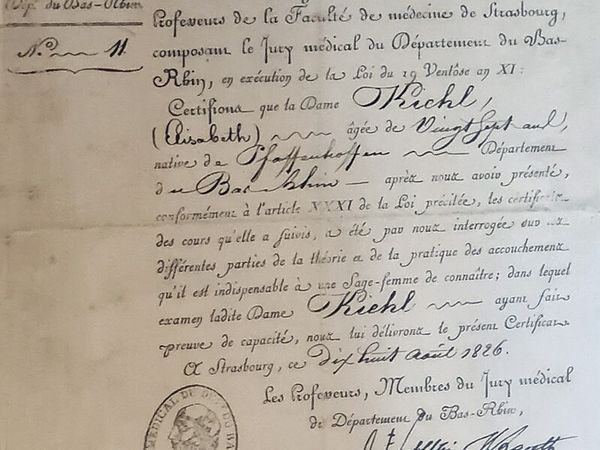 Dép.t du Bas-Rhin.
N.o 11
Professeurs de la Faculté de médecine de Strasbourg,
composant le Jury médical du Département du Bas-
Rhin, en exécution de la Loi du 19 Ventôse an XI:
Certifions que la Dame Kiehl,
(Elisabeth) âgée de Vingt Sept ans,
native de Pfaffenhoffen Département
du Bas-Rhin après nous avoir présenté,
conformément à l'article XXXI de la Loi précitée, les certificats
des cours qu'elle a suivis, a été par nous interrogée sur les
différentes parties de la théorie et de la pratique des accouchemens
qu'il est indispensable à une Sage-femme de connaître; dans lequel
examen ladite Dame Kiehl ayant fait
preuve de capacité, nous lui délivrons le présent Certificat.
A Strasbourg, ce dix huit août 1826.
Les Professeurs, Membres du Jury médical
du Département du Bas-Rhin,
MEDICAL DU DEP. DU BA